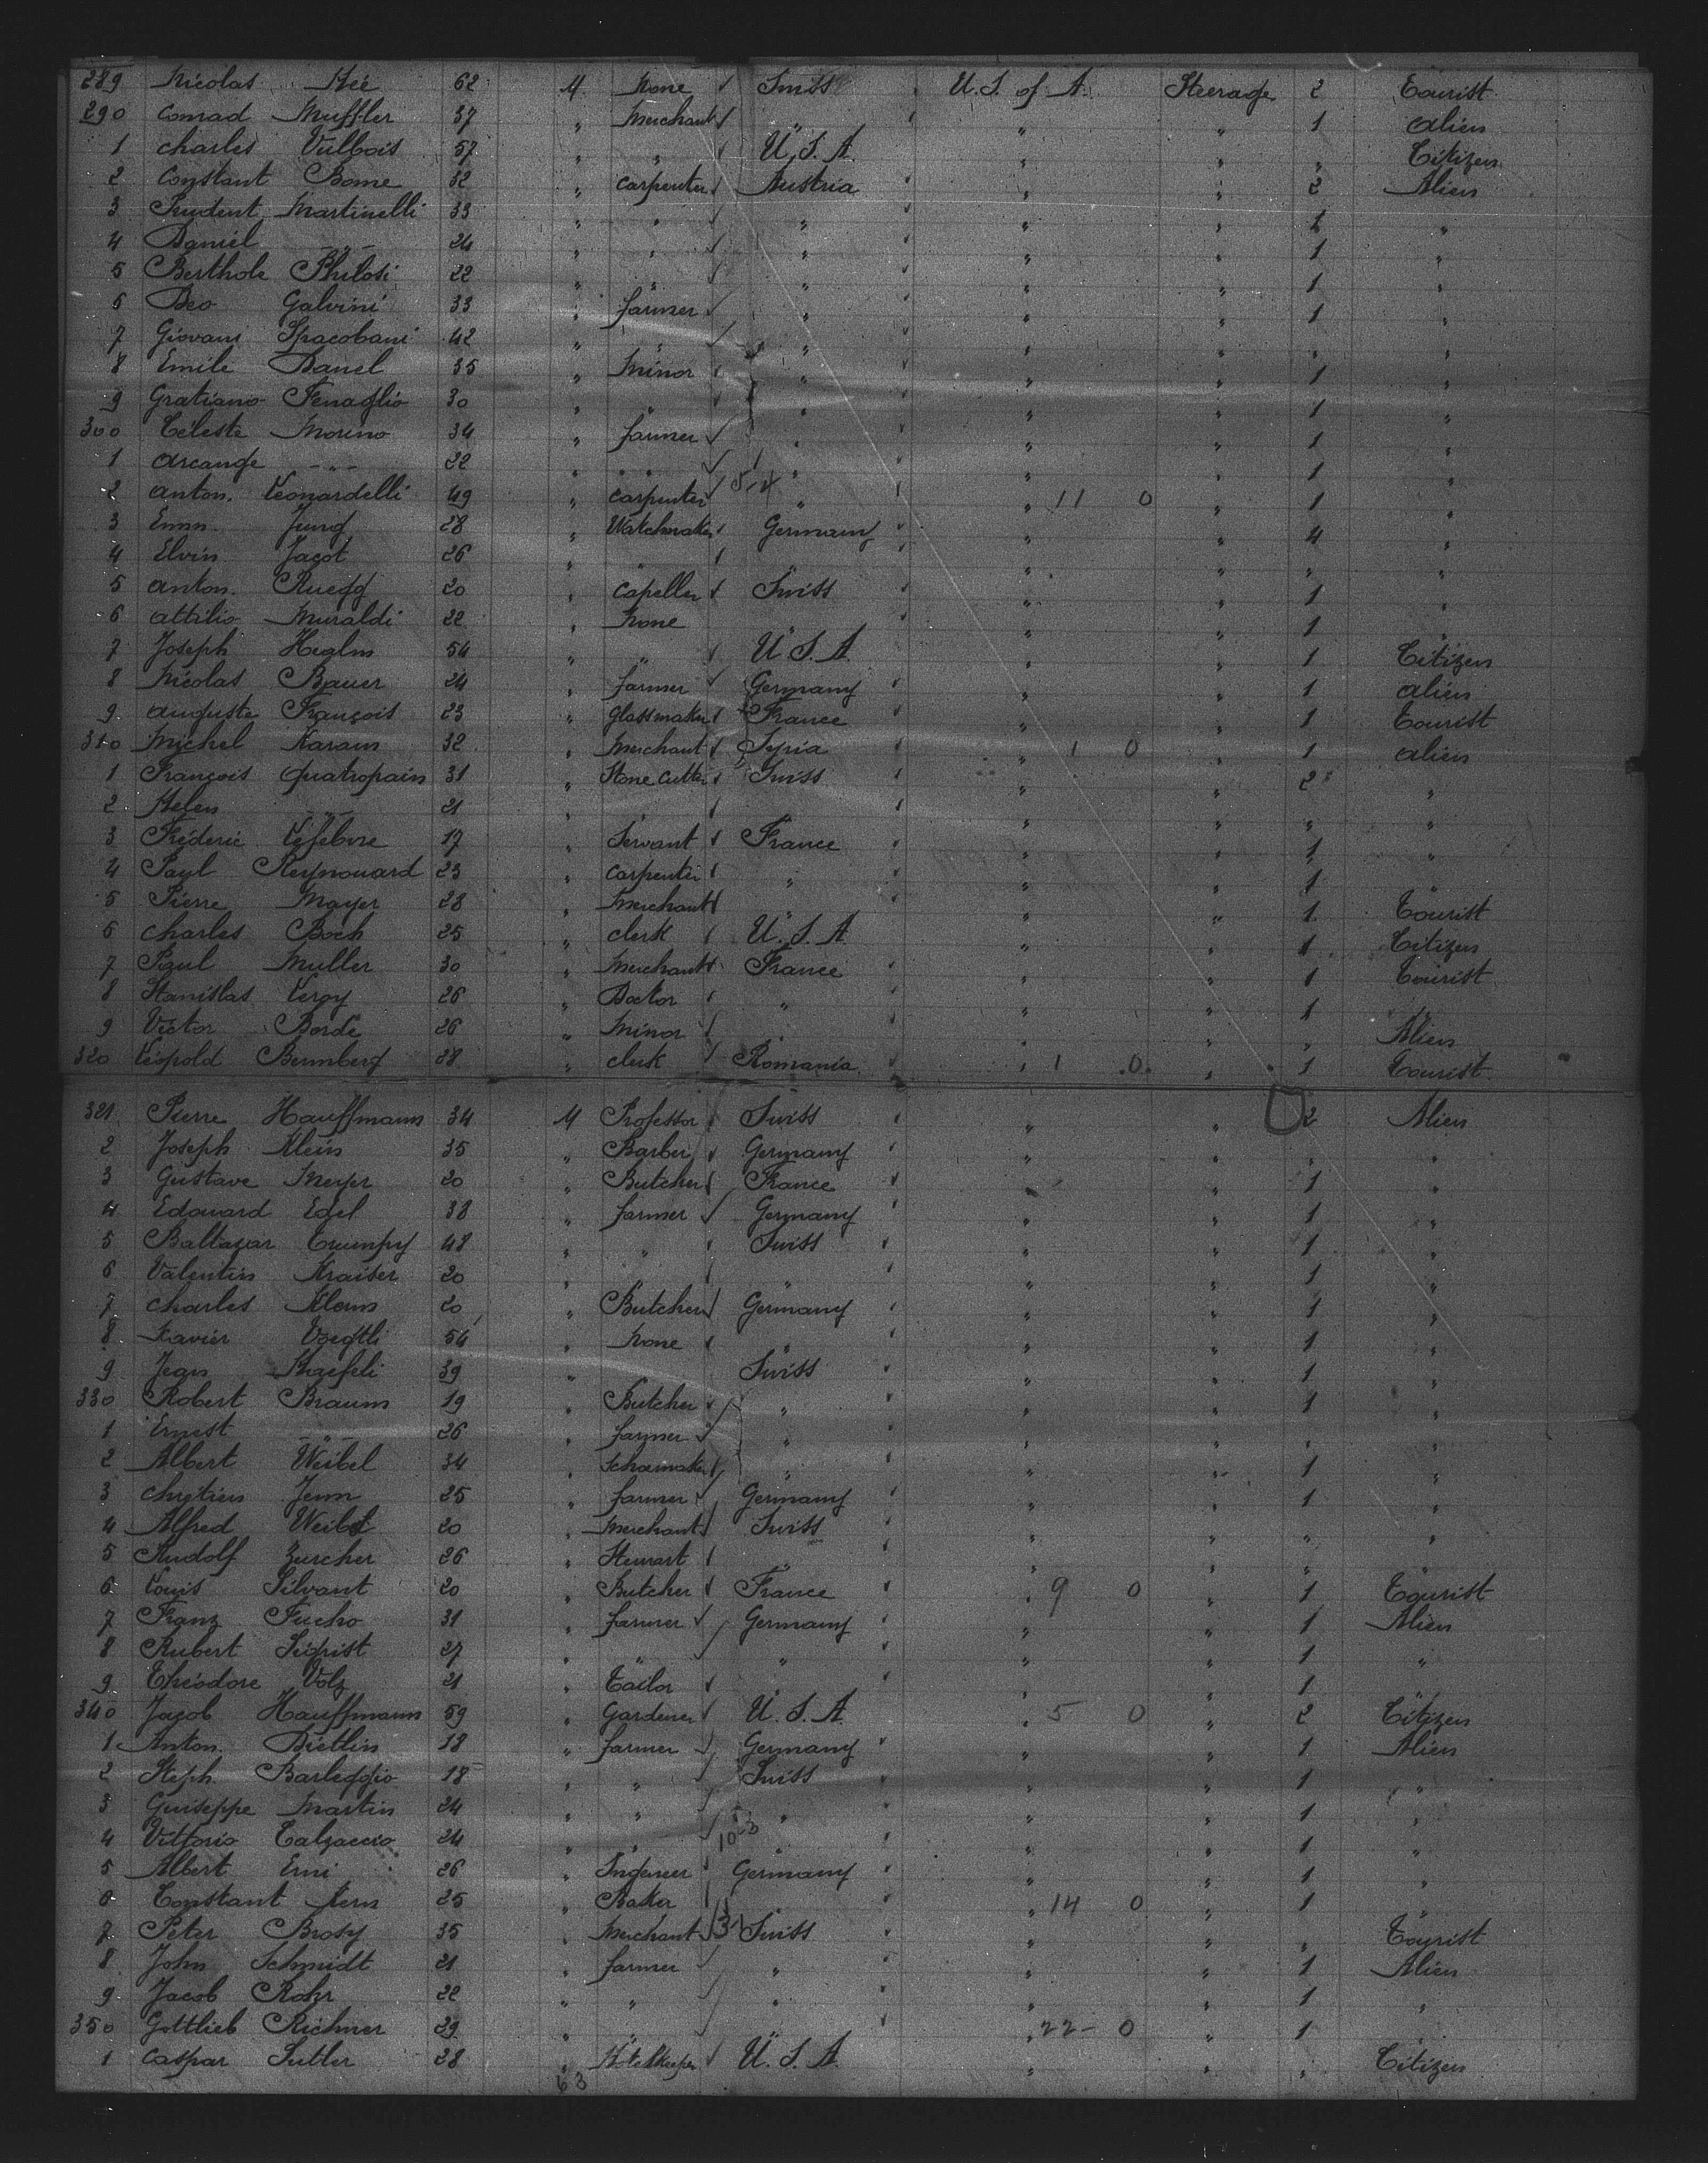 289 Nicolas Hée 62 M None Swiss U.S. of A. Steerage 2 Tourist
290 Conrad Muffler 37 " Merchant " " " 1 Alien
1 Charles Vulbois 57 " " U.S.A. " " " Citizen
2 Constant Bome 32 " Carpenter Austria " " 2 Alien
3 Prudent Martinelli 33 " " " " " 1 "
4 Daniel -"- 24 " " " " " 1 "
5 Berthole Philosi 22 " " " " " 1 "
6 Beo Galvini 33 " farmer " " " 1 "
7 Giovani Spacobani 42 " " " " " " "
8 Emile Banel 35 " Minor " " " 1 "
9 Gratiano Fenaglio 30 " " " " " 1 "
300 Céleste Morino 34 " farmer " " " 1 "
1 Arcange -"- 22 " " " " " 1 "
2 Anton. Leonardelli 49 " Carpenter 5-4 " " 11 0 " 1 "
3 Emm. Jung 28 " Watchmaker Germany " " 4 "
4 Elvin Jacot 26 " " " " " " "
5 Anton. Ruegg 20 " Capeller Swiss " " 1 "
6 Attilio Muraldi 22 " None " " " 1 "
7 Joseph Healm 54 " " U.S.A. " " 1 Citizen
8 Nicolas Bauer 24 " farmer Germany " " 1 Alien
9 Auguste François 23 " Glassmaker France " " 1 Tourist
310 Michel Karam 32 " Merchant Syria " 1 0 " 1 Alien
1 François Quatropain 31 " Stone Cutter Swiss " " 2 "
2 Helen -"- 21 " " " " " " "
3 Fréderic Lefebvre 17 " Servant France " " 1 "
4 Paul Reynouard 23 " Carpenter " " " 1 "
5 Pierre Mayer 28 " Merchant " " " 1 Tourist
6 Charles Bock 25 " Clerk U.S.A. " " 1 Citizen
7 Paul Muller 30 " Merchant France " " 1 Tourist
8 Stanislas Leroy 26 " Doctor " " " 1 "
9 Victor Borde 26 " Minor " " " " Alien
320 Léopold Bernberg 28 " Clerk Romania " 1 0 " 1 Tourist
321 Pierre Hauffmann 34 M Professor Swiss " " 2 Alien
2 Joseph Klein 35 " Barber Germany " " " "
3 Gustave Meyer 20 " Butcher France " " 1 "
4 Edouard Egel 38 " farmer Germany " " 1 "
5 Baltazar Trumpy 48 " " Swiss " " 1 "
6 Valentin Kraiser 20 " " " " " 1 "
7 Charles Klemm 20 " Butcher Germany " " 1 "
8 Xavier Voegtli 54 " None " " " 1 "
9 Jean Haefeli 39 " Swiss " " 1 "
330 Robert Braum 19 " Butcher " " " 1 "
1 Ernest -"- 26 " farmer " " " " "
2 Albert Weibel 34 " Schoemaker " " " 1 "
3 Chrétien Jenn 25 " farmer Germany " " 1 "
4 Alfred Weibel 20 " Merchant Swiss " " " "
5 Rudolf Zurcher 26 " Stewart " " " " "
6 Louis Silvant 20 " Butcher France " 9 0 " 1 Tourist
7 Franz Fucho 31 " farmer Germany " " 1 Alien
8 Rubert Sigrist 27 " " " " " 1 "
9 Théodore Volz 21 " Tailor " " " 1 "
340 Jacob Hauffmann 59 " Gardener U.S.A. " 5 0 " 2 Citizen
1 Anton. Dietlin 18 " farmer Germany " " 1 Alien
2 Steph. Barleggio 18 " " Swiss " " 1 "
3 Guiseppe Martin 24 " " " " " 1 "
4 Vittorio Calzaccio 24 " " 10-3 " " " 1 "
5 Albert Erni 26 " Ingeneer Germany " " 1 "
6 Constant Kern 25 " Baker " " 14 0 " 1 "
7 Peter Brosy 35 " Merchant 31 Swiss " " " Tourist
8 John Schmidt 21 " farmer " " " 1 Alien
9 Jacob Rohr 22 " " " " " 1 "
350 Gottlieb Richner 29 " " " " 22- 0 " 1 "
1 Caspar Sutler 28 " Hotelkeeper U.S.A. " " " Citizen
63